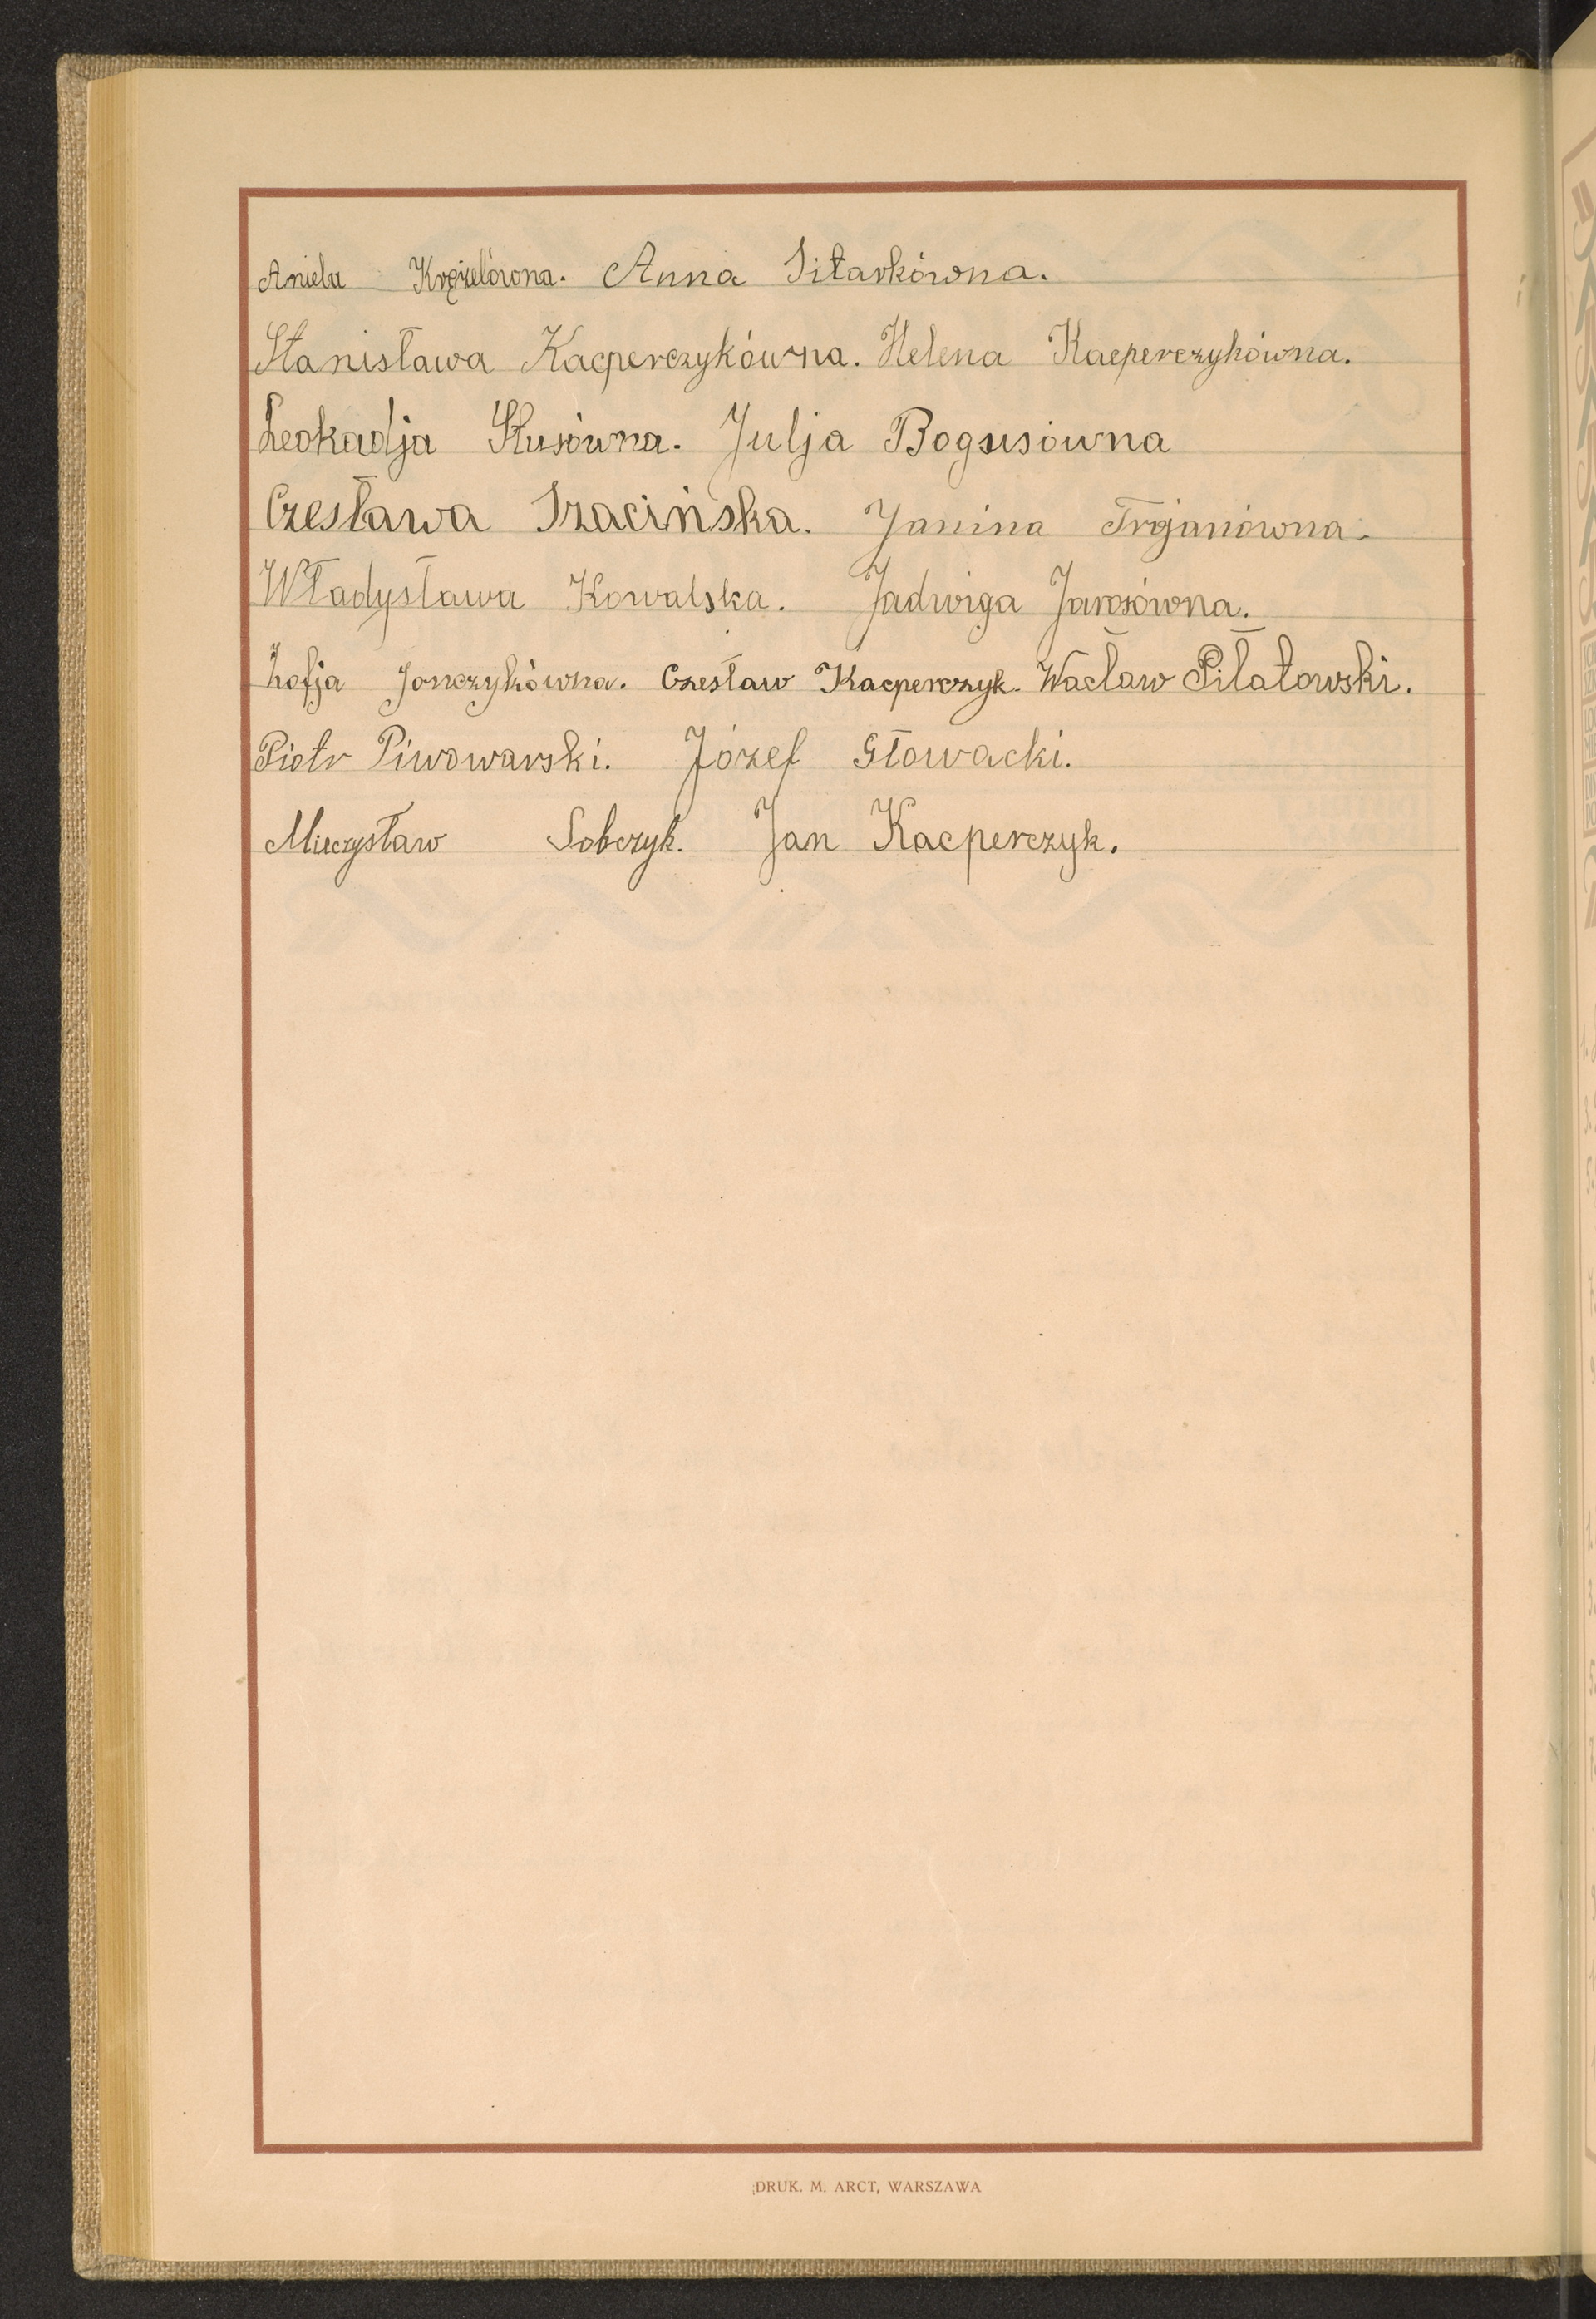 Aniela Krężelówna. Anna Sitarkówna.
Stanisława Kacperczykówna. Helena Kacperczykówna.
Leokadja Stusówna. Julja Bogusówna
Czesława Szacińska. Janina Trojanówna.
Władysława Kowalska. Jadwiga Jarosówna.
Zofja Jonczykówna. Czesław Kacperczyk. Wacław Piłatowski.
Piotr Piwowarski. Józef Głowacki.
Mieczysław Sobczyk. Jan Kacperczyk.
DRUK. M. ARCT, WARSZAWA